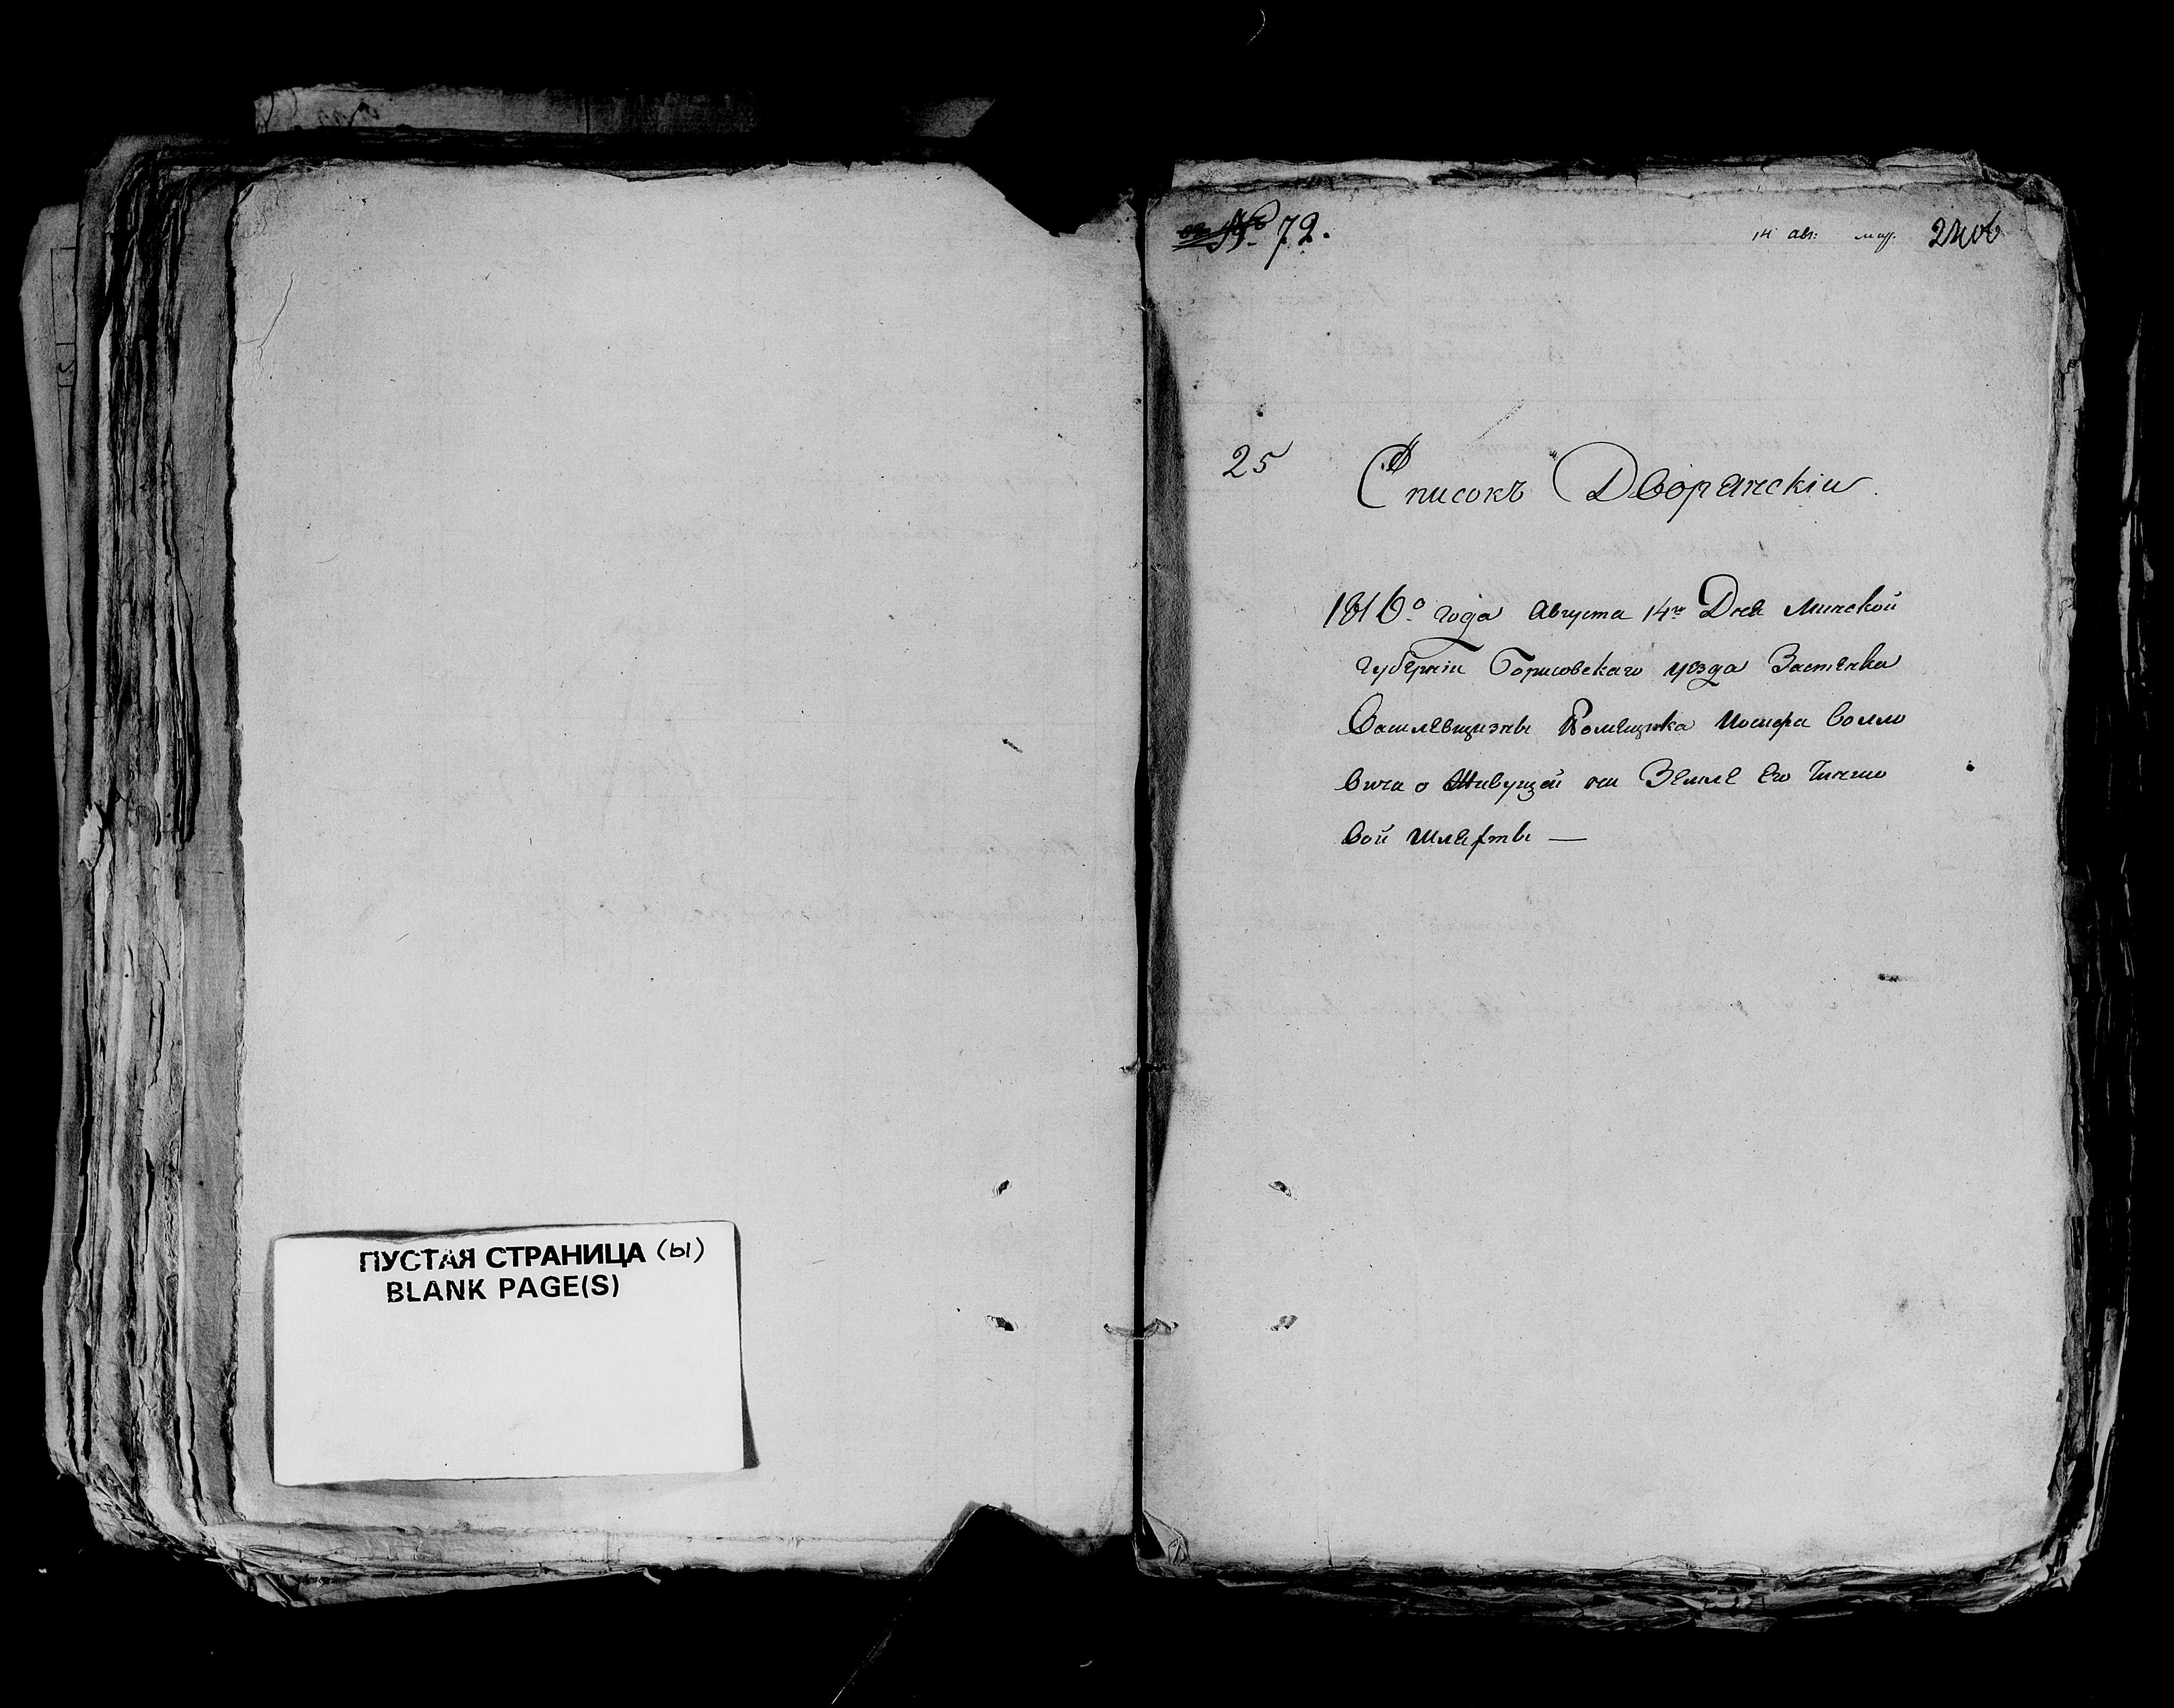 ПУСТАЯ СТРАНИЦА (ы)
BLANK PAGE(S)
№ 72.
14 авг.
25
Списокъ Дворянскіи
1816го года Августа 14го Дня Минской
Губерніи Борисовскаго уезда Застенка
Помещика Иосифа Волло
вича о Живущей на Земле Его Чиншо
вой Шляхты —